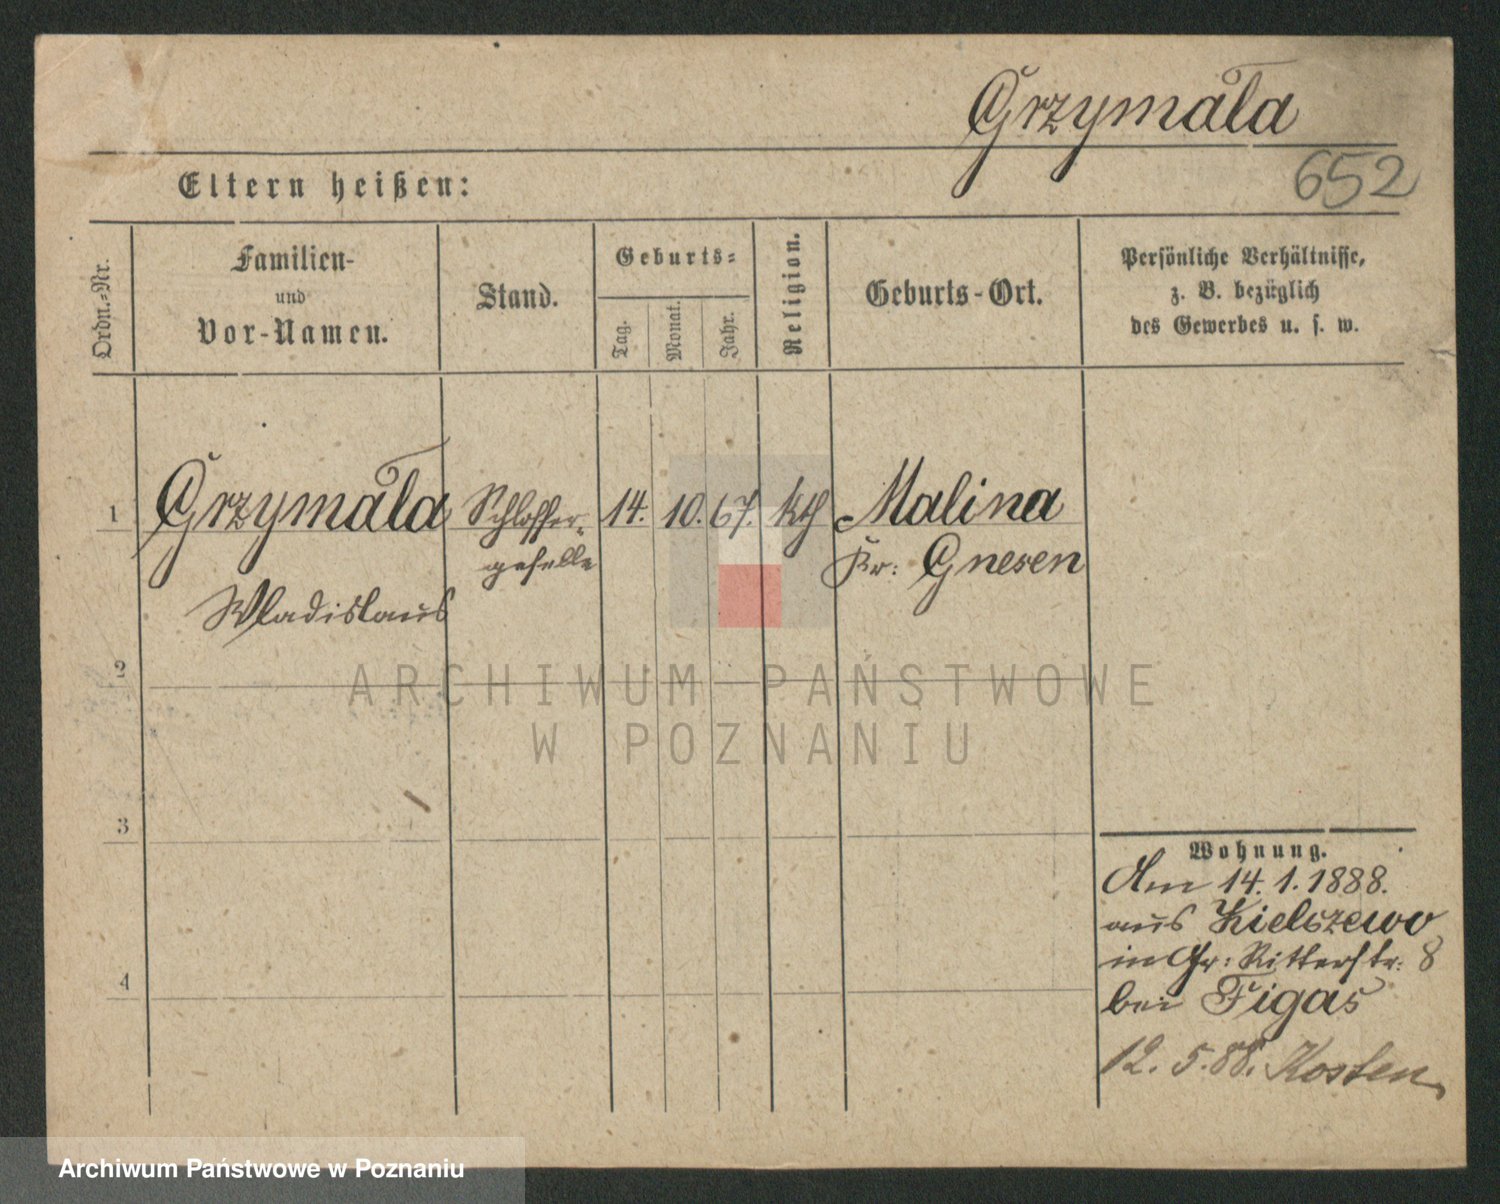 Grzymała
652
Eltern heißen:
Ordn.-Nr.
Familien-
und
Vor-Namen.
Stand.
Geburts-
Tag.
Monat.
Jahr.
Religion.
Geburts-Ort.
Persönliche Verhältnisse,
z. B. bezüglich
des Gewerbes u. s. w.
1 Grzymała Schlosser- 14. 10. 67. kth Malina
geselle Kr: Gnesen
Wladislaus
2
ARCHIWUM PAŃSTWOWE
W POZNANIU
3
Wohnung.
Am 14.1.1888.
aus Kielszewo
in Gr: Ritterstr: 8
bei Figas
4
12. 5. 88. Kosten
Archiwum Państwowe w Poznaniu